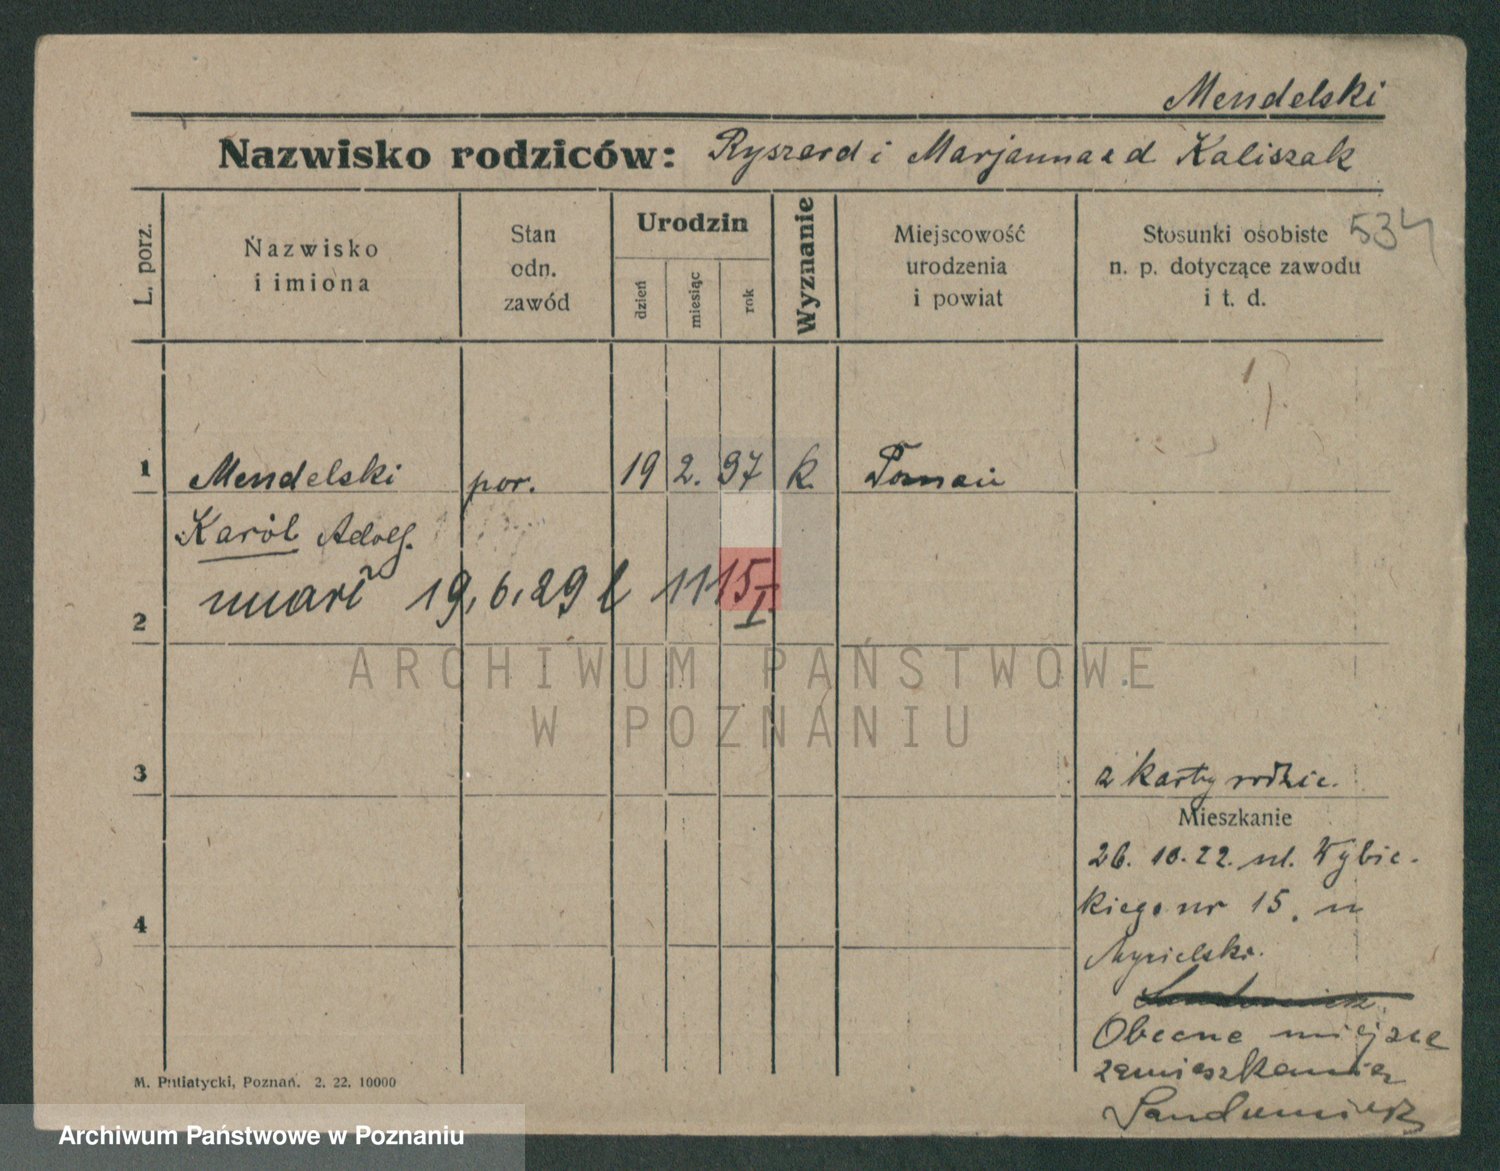 Mendelski
Nazwisko rodziców: Ryszard i Marjanna z d Kaliszak
534
L. porz.
Nazwisko
i imiona
Stan
odn.
zawód
Urodzin
dzień
miesiąc
rok
Wyznanie
Miejscowość
urodzenia
i powiat
Stosunki osobiste
n. p. dotyczące zawodu
i t. d.
1 Mendelski por. 19 2. 97 k. Poznań
Karól Adolf.
2 19.6.29 1115
I.
ARCHIWUM PAŃSTWOWE
W POZNANIU
3 z karty rodzic.
Mieszkanie
26. 10. 22. ul. Wybic-
kiego nr 15. u
4
Obecne miejsce
zamieszkania
Sandomierz
M. Putiatycki, Poznań. 2. 22. 10000
Archiwum Państwowe w Poznaniu